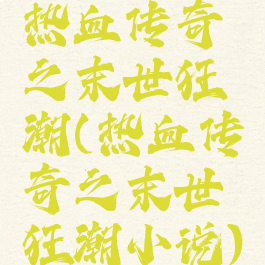 热血传奇
之末世狂
潮(热血传
奇之末世
狂潮小说)